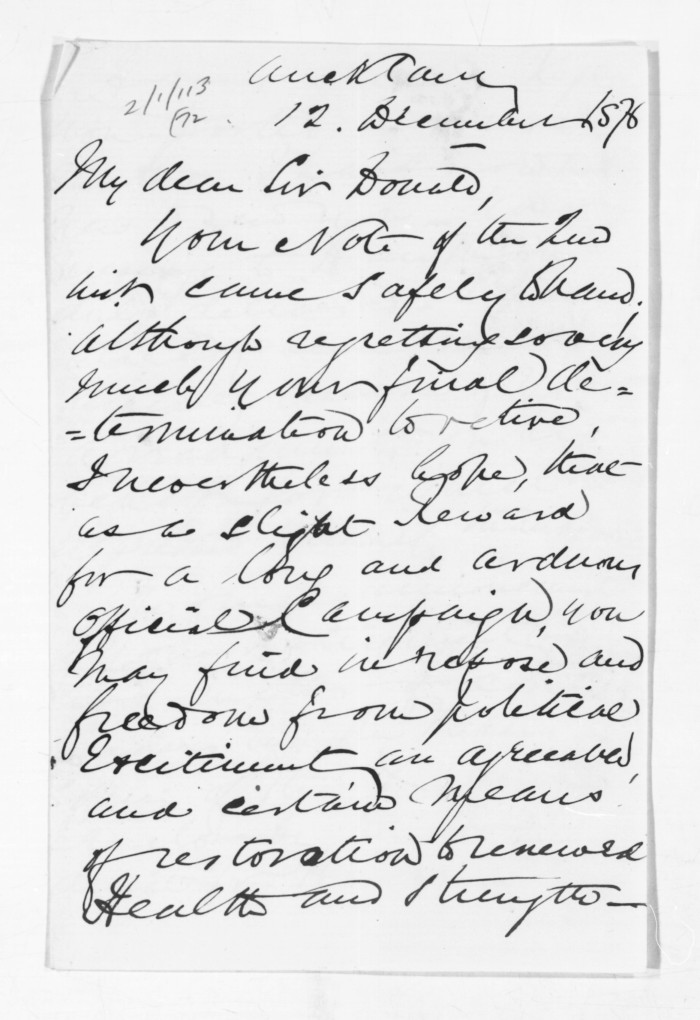 Auckland
2/1/113
/72
12. December 1876
My dear Sir Donald,
Your Note of the 2nd
inst came safely to hand.
Although regretting so very
much your final de=
=termination to retire,
I nevertheless hope, that
as a slight reward
for a long and arduous
official Campaign, you
may find in repose and
freedom from political
Excitement an agreeable,
and certain means
of restoration to renewed
Health and strength—